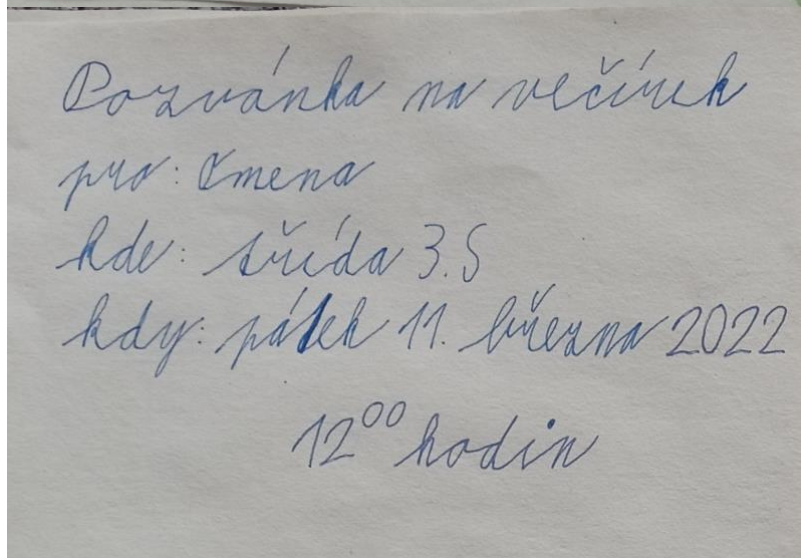 Pozvánka na večírek
pro:
kde: třída 3.S
kdy: pátek 11. března 2022
12⁰⁰ hodin